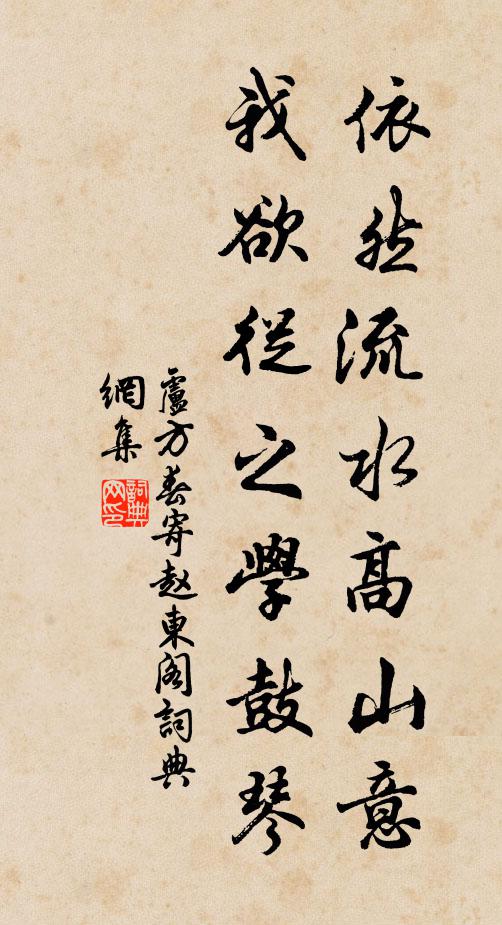 依然流水高山意
我欲從之學鼓琴
盧方春寄趙東閣詞典
網集
詞典網印